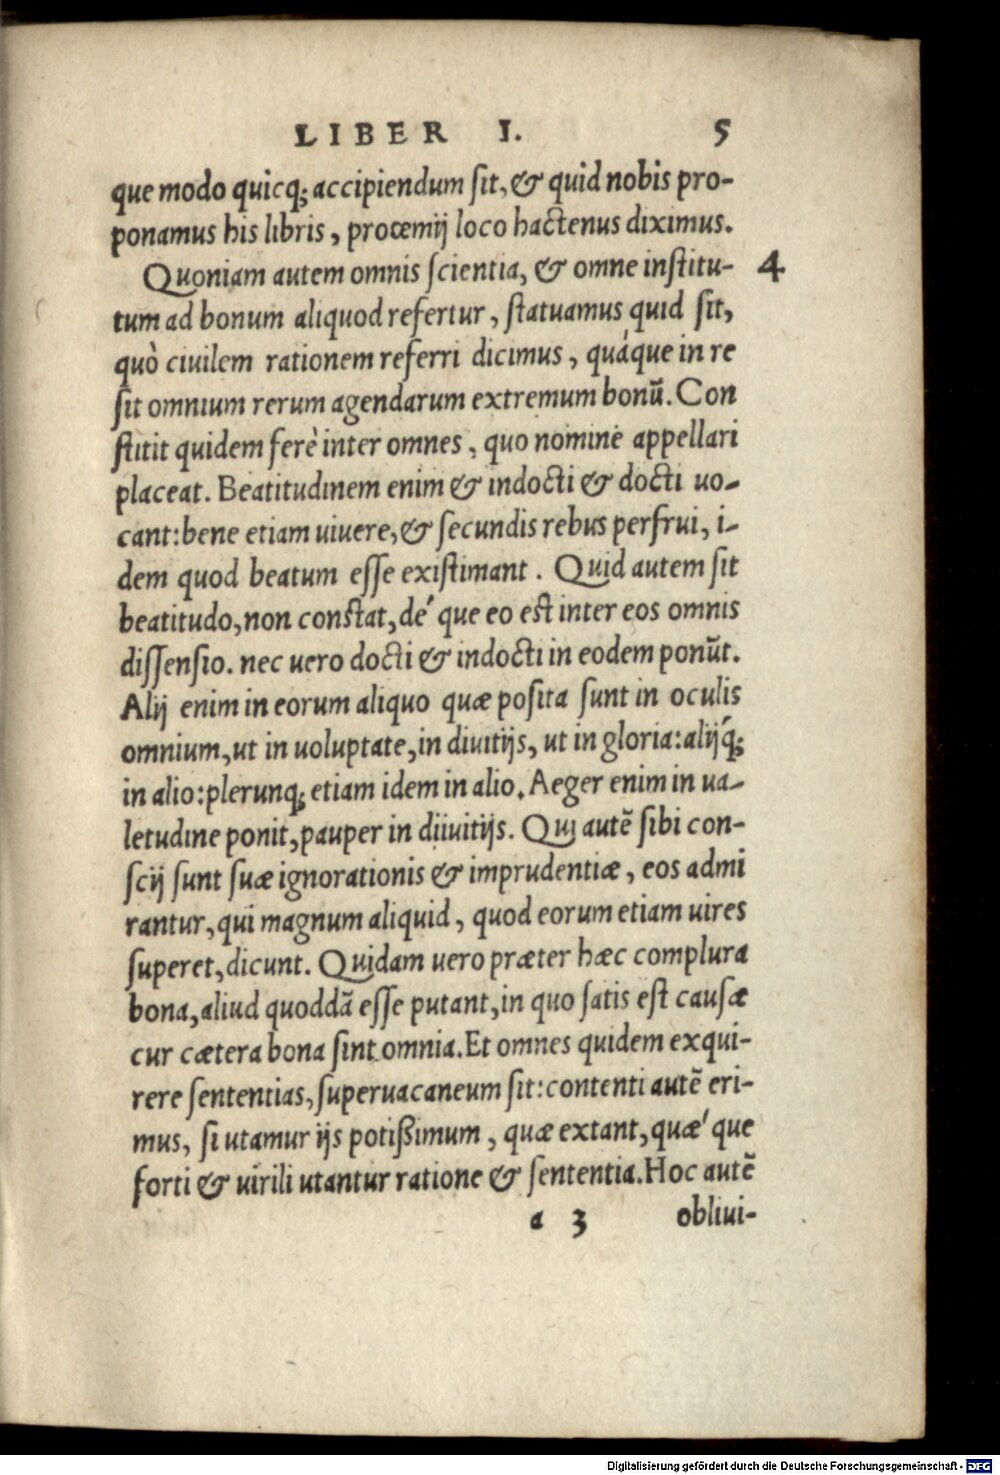 LIBER I. 5
que modo quicq; accipiendum ſit, & quid nobis pro-
ponamus his libris, proœmij loco hactenus diximus.
Quoniam autem omnis ſcientia, & omne inſtitu- 4
tum ad bonum aliquod refertur, ſtatuamus quid ſit,
quò ciuilem rationem referri dicimus, quáque in re
ſit omnium rerum agendarum extremum bonū. Con
ſtitit quidem ferè inter omnes, quo nomine appellari
placeat. Beatitudinem enim & indocti & docti uo-
cant: bene etiam uiuere, & ſecundis rebus perfrui, i-
dem quod beatum eſſe exiſtimant. Quid autem ſit
beatitudo, non conſtat, dé que eo eſt inter eos omnis
diſſenſio. nec uero docti & indocti in eodem ponūt.
Alij enim in eorum aliquo quæ poſita ſunt in oculis
omnium, ut in uoluptate, in diuitijs, ut in gloria: alijq́;
in alio: plerunq; etiam idem in alio. Aeger enim in ua-
letudine ponit, pauper in diiuitijs. Qui autē ſibi con-
ſcij ſunt ſuæ ignorationis & imprudentiæ, eos admi
rantur, qui magnum aliquid, quod eorum etiam uires
ſuperet, dicunt. Quidam uero præter hæc complura
bona, aliud quoddā eſſe putant, in quo ſatis eſt cauſæ
cur cætera bona ſint omnia. Et omnes quidem exqui-
rere ſententias, ſuperuacaneum ſit: contenti autē eri-
mus, ſi utamur ijs potißimum, quæ extant, quǽ que
forti & uirili utantur ratione & ſententia. Hoc autē
a 3 obliui-
Digitalisierung gefördert durch die Deutsche Forschungsgemeinschaft - DFG